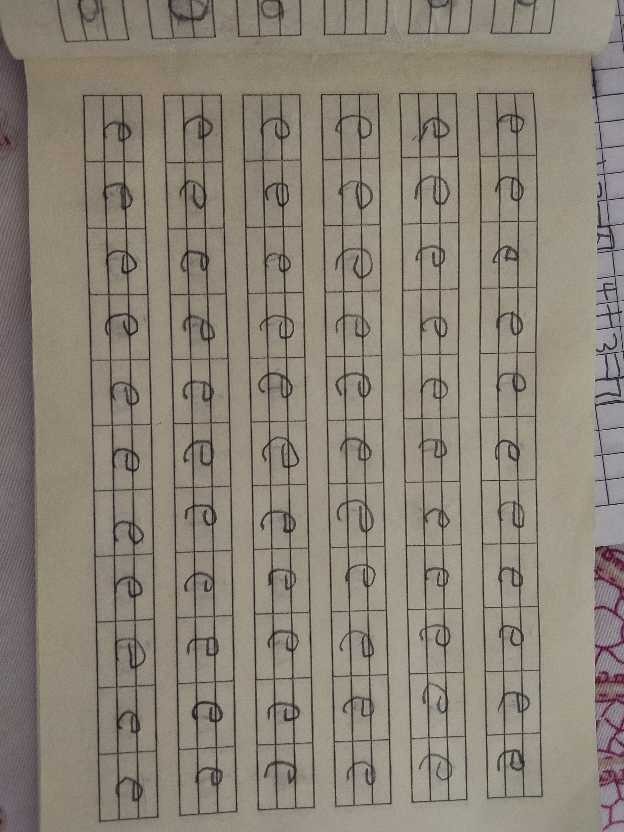 e e e e e e e e e e e
e e e e e e e e e e e
e e e e e e e e e e e
e e e e e e e e e e e
e e e e e e e e e e e
e e e e e e e e e e e
4+3=7